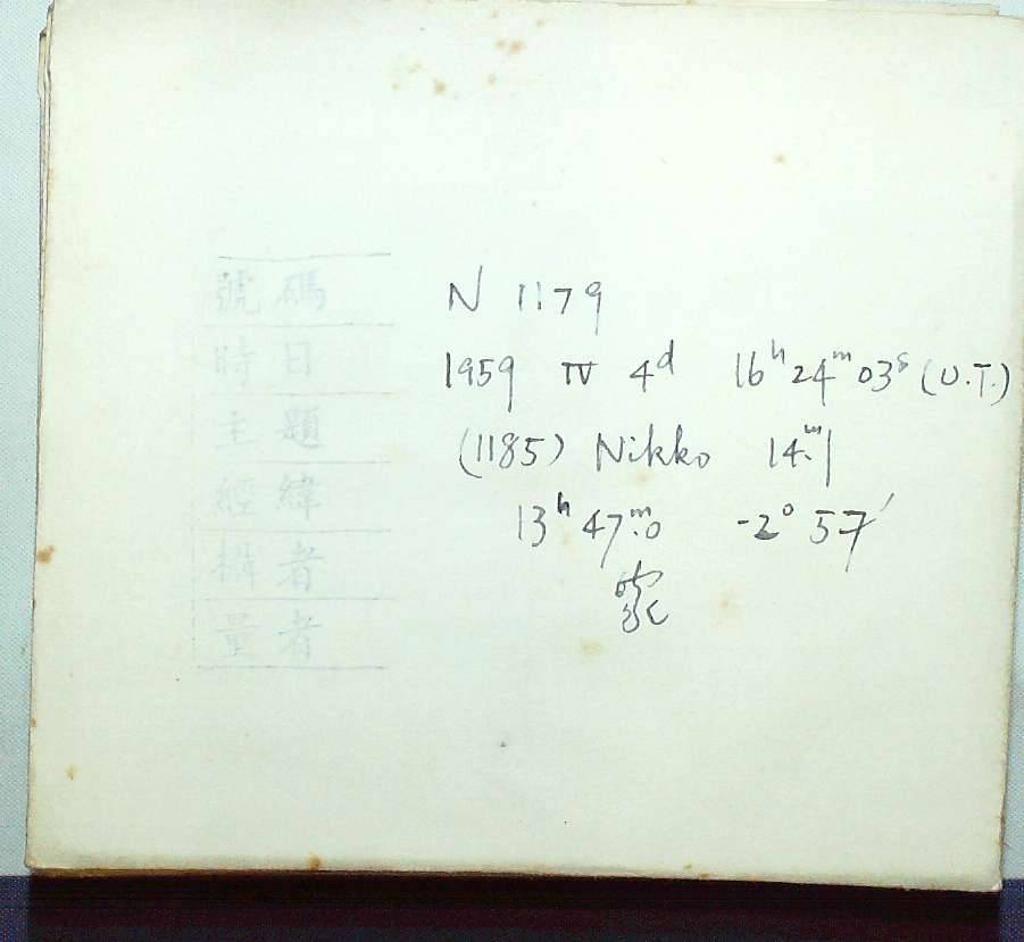 號碼 N 1179
時日 1959 IV 4ᵈ 16ʰ24ᵐ03ˢ (U.T.)
主題 (1185) Nikko 14ᵐ.1
經緯 13ʰ 47ᵐ.0 -2° 57′
攝者
量者